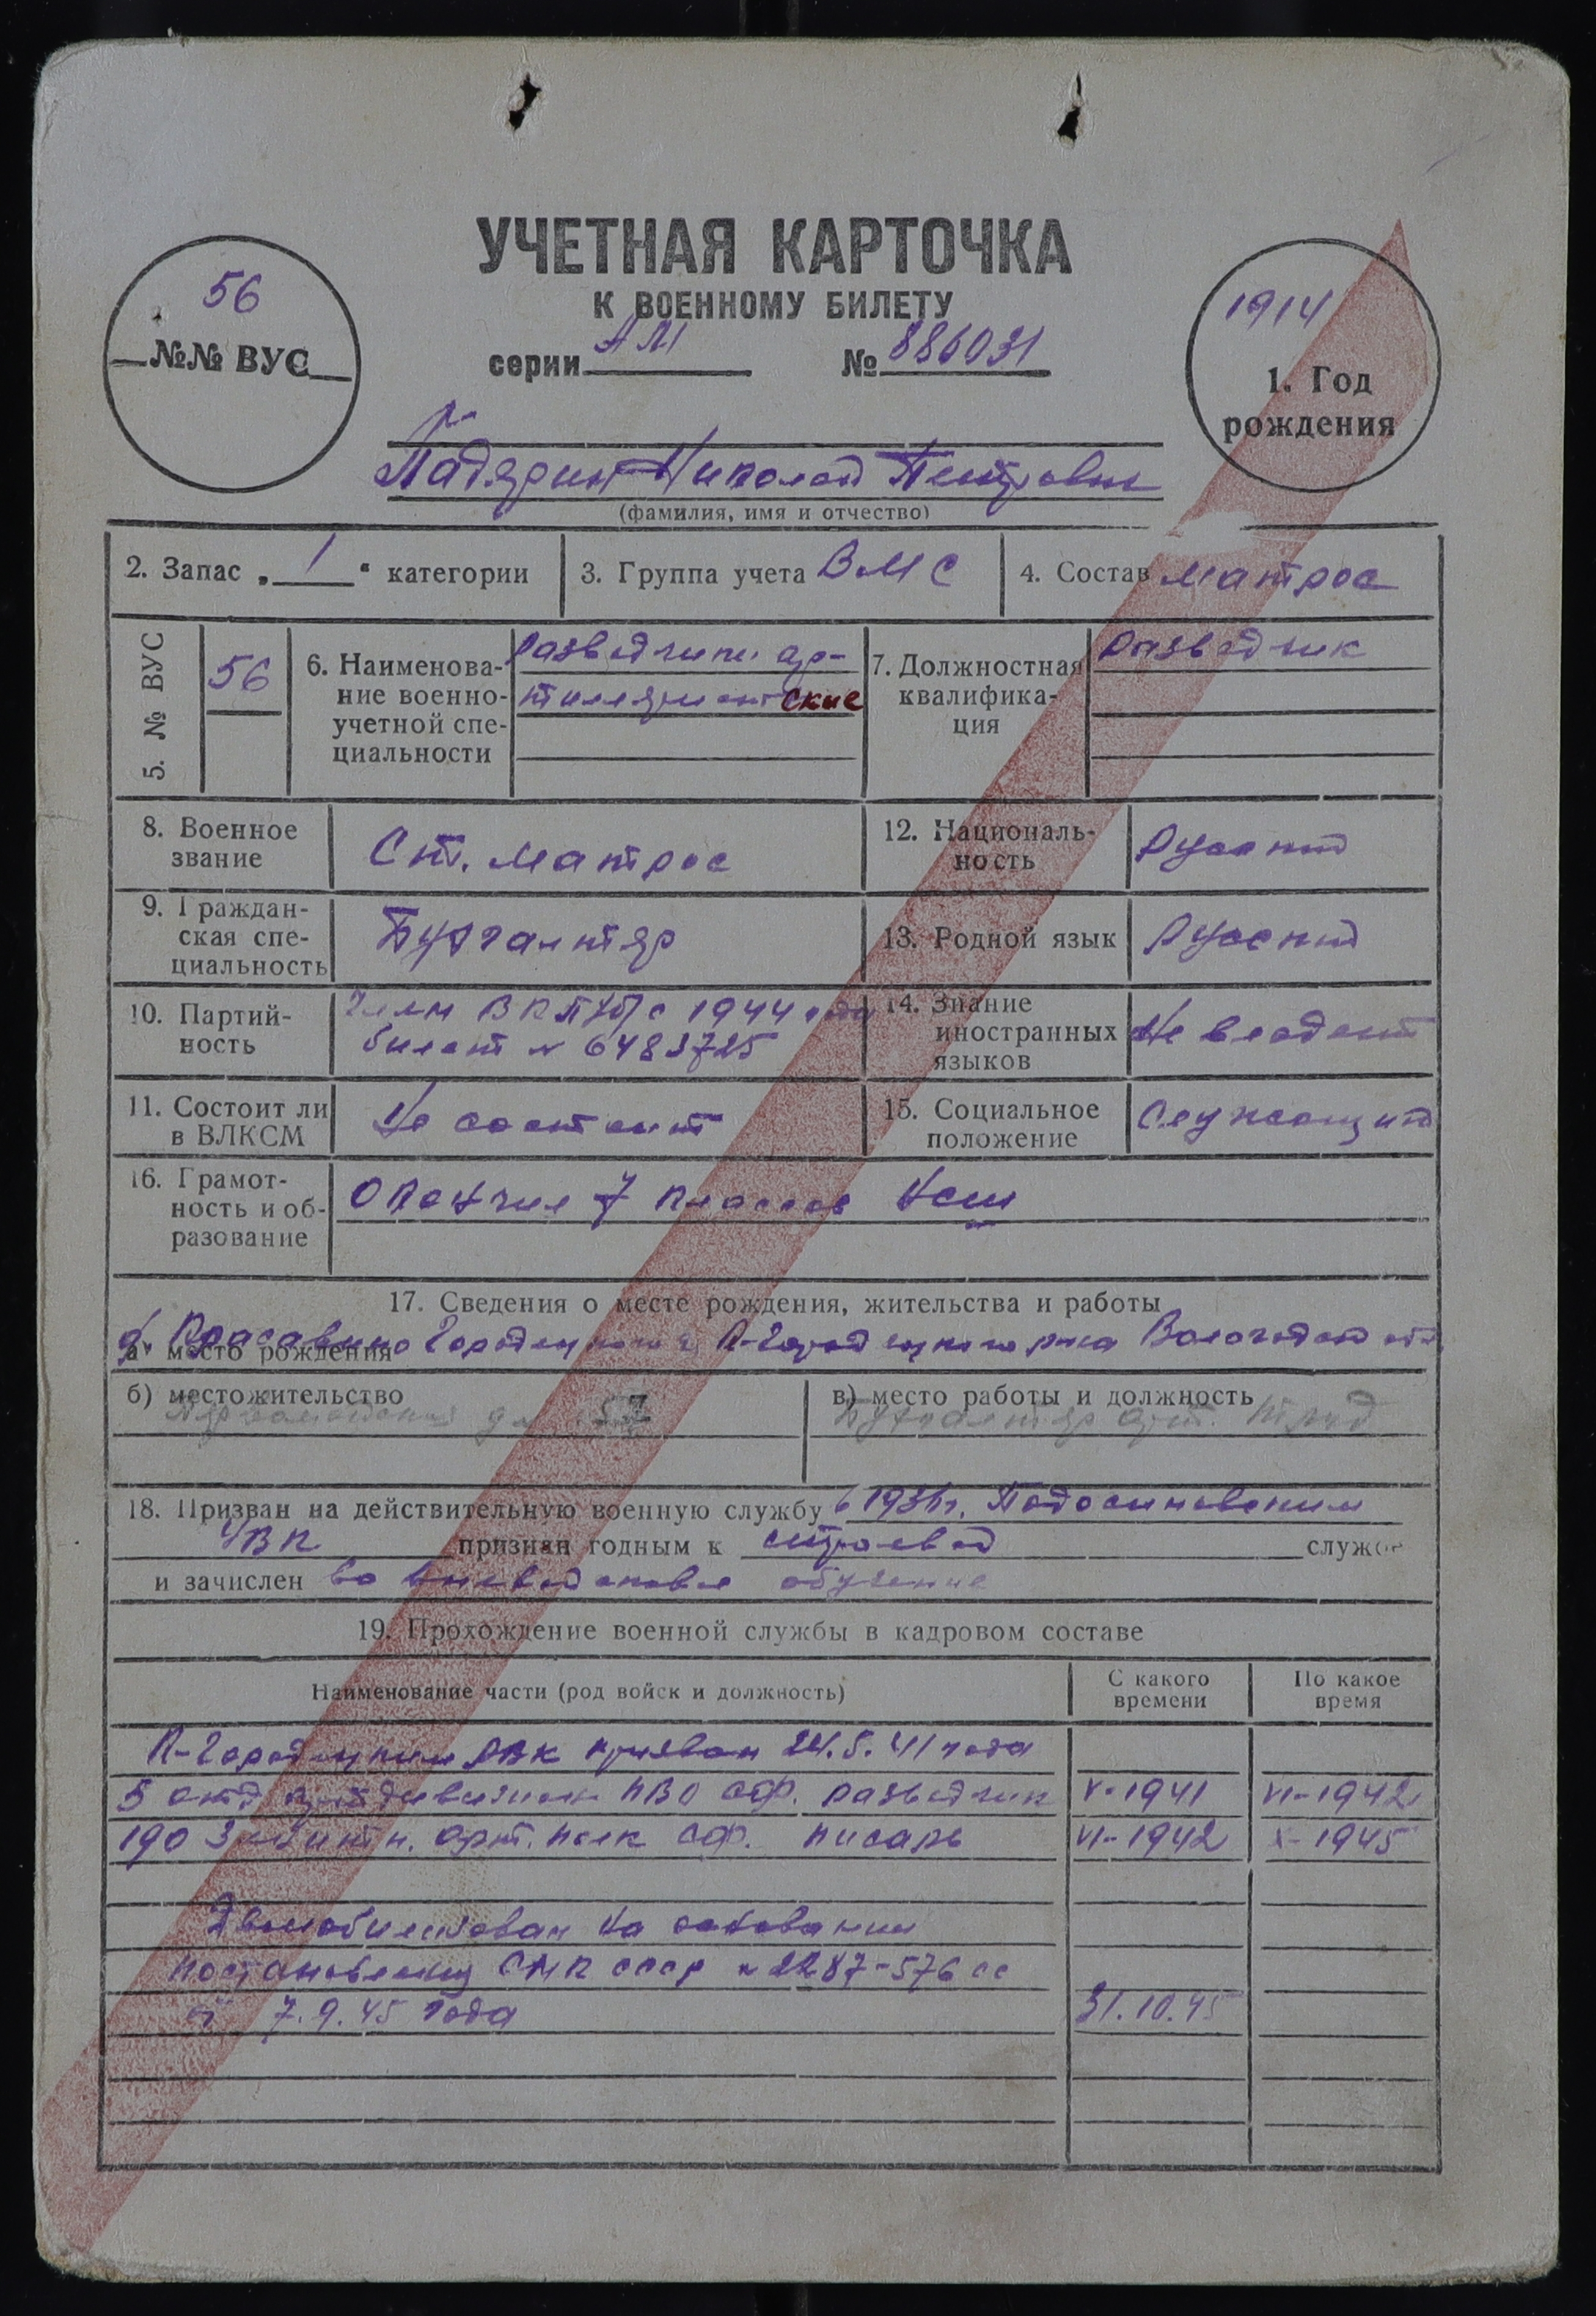 УЧЕТНАЯ КАРТОЧКА
К ВОЕННОМУ БИЛЕТУ
серии АМ № 886031
56
№№ ВУС
1914
1. Год
рождения
Николай Петрович
(фамилия, имя и отчество)
2. Запас „ 1 “ категории
3. Группа учета ВМС
4. Состав матрос
5. № ВУС 56
6. Наименова-
ние военно-
учетной спе-
циальности
Разведчики ар-
тиллерийские
7. Должностная
квалифика-
ция
Разведчик
8. Военное
звание
Ст. матрос
12. Националь-
ность
Русский
9. Граждан-
ская спе-
циальность
Бухгалтер
13. Родной язык Русский
10. Партий-
ность
Член ВКП(б) с 1944 года
билет № 6483725
14. Знание
иностранных
языков
Не владеет
11. Состоит ли
в ВЛКСМ
Не состоит
15. Социальное
положение
Служащий
16. Грамот-
ность и об-
разование
Окончил 7 классов нсш
17. Сведения о месте рождения, жительства и работы
д. Красавино К-Городецкого р-на Вологодской обл.
а) место рождения
б) местожительство
57
в) место работы и должность
Бухгалтер арт. Труд
18. Призван на действительную военную службу в 1936 г. Подосиновским
УВК признан годным к строевой службе
и зачислен во вневойсковое обучение
19. Прохождение военной службы в кадровом составе
Наименование части (род войск и должность)
С какого
времени
По какое
время
К-Городецким РВК призван 24.5.41 года
5 отд. артдивизион ПВО СФ. разведчик V-1941 VI-1942
190 зенитн. арт. полк СФ. писарь VI-1942 X-1945
Демобилизован на основании
постановления СНК СССР № 2287-576 сс
от 7.9.45 года 31.10.45